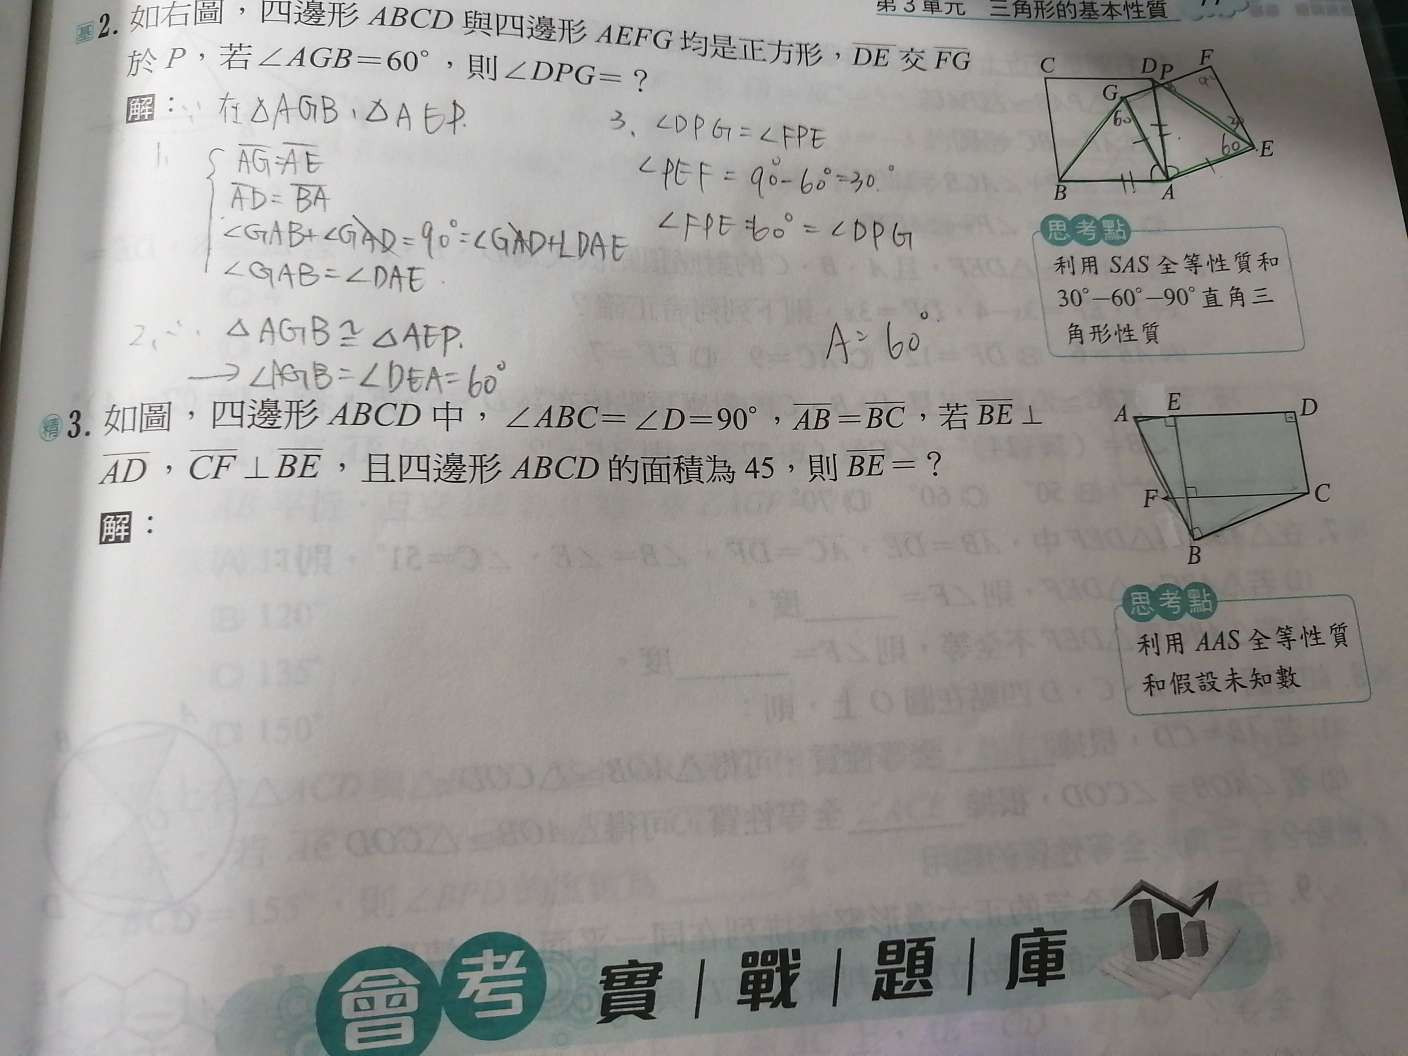 第3單元 三角形的基本性質
基 2. 如右圖，四邊形 ABCD 與四邊形 AEFG 均是正方形，DE 交 FG
於 P，若∠AGB＝60°，則∠DPG＝？
解：在△AGB、△AEP.
1.
AG=AE
AD=BA
∠GAB+∠GAD=90°=∠GAD+∠DAE
∠GAB=∠DAE
2、∴ △AGB≅△AEP.
→∠AGB=∠DEA=60°
3、∠DPG=∠FPE
∠PEF=90°-60°=30°
∠FPE=60°=∠DPG
A=60°
C D P F
G
60
30
60
E
B A
思考點
利用 SAS 全等性質和
30°－60°－90°直角三
角形性質
精 3. 如圖，四邊形 ABCD 中，∠ABC＝∠D＝90°，AB＝BC，若 BE⊥
AD，CF⊥BE，且四邊形 ABCD 的面積為 45，則 BE＝？
解：
A E D
F C
B
思考點
利用 AAS 全等性質
和假設未知數
會考 實｜戰｜題｜庫